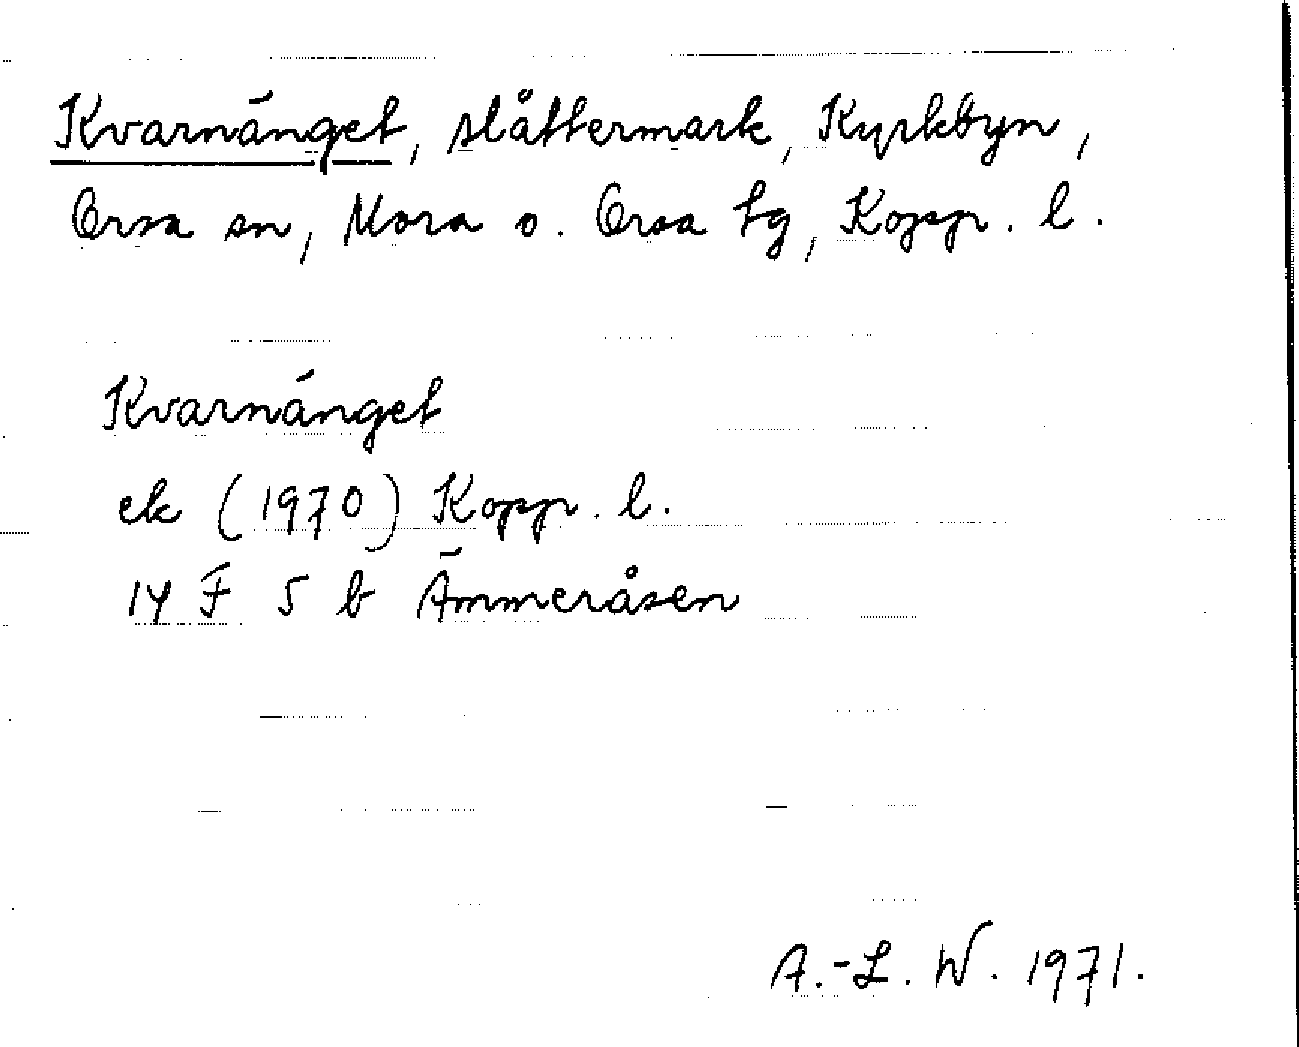 Kvarnänget, slåttermark, Kyrkbyn,
Orsa sn, Mora o. Orsa tg, Kopp. l.
Kvarnänget
ek (1970) Kopp. l.
14 F 5 b Ämmeråsen
A.-L. W. 1971.